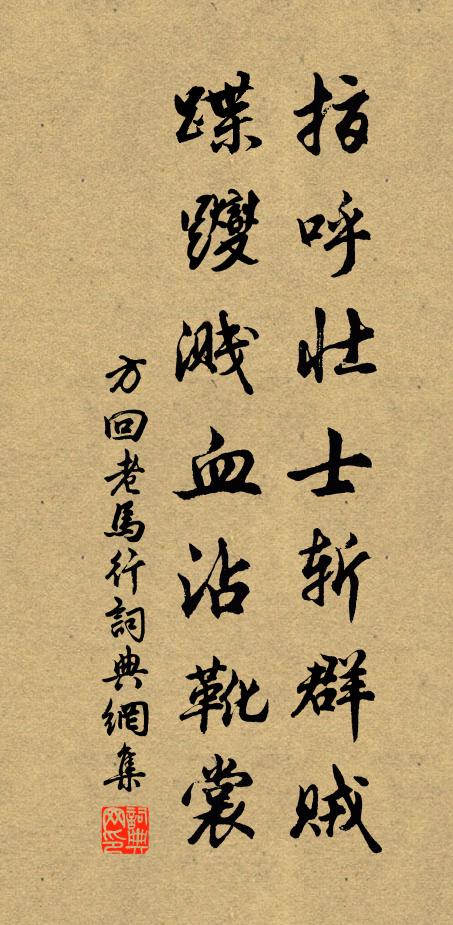 指呼壯士斬群賊
蹀躞濺血沾靴裳
方回老馬行詞典網集
詞典網印